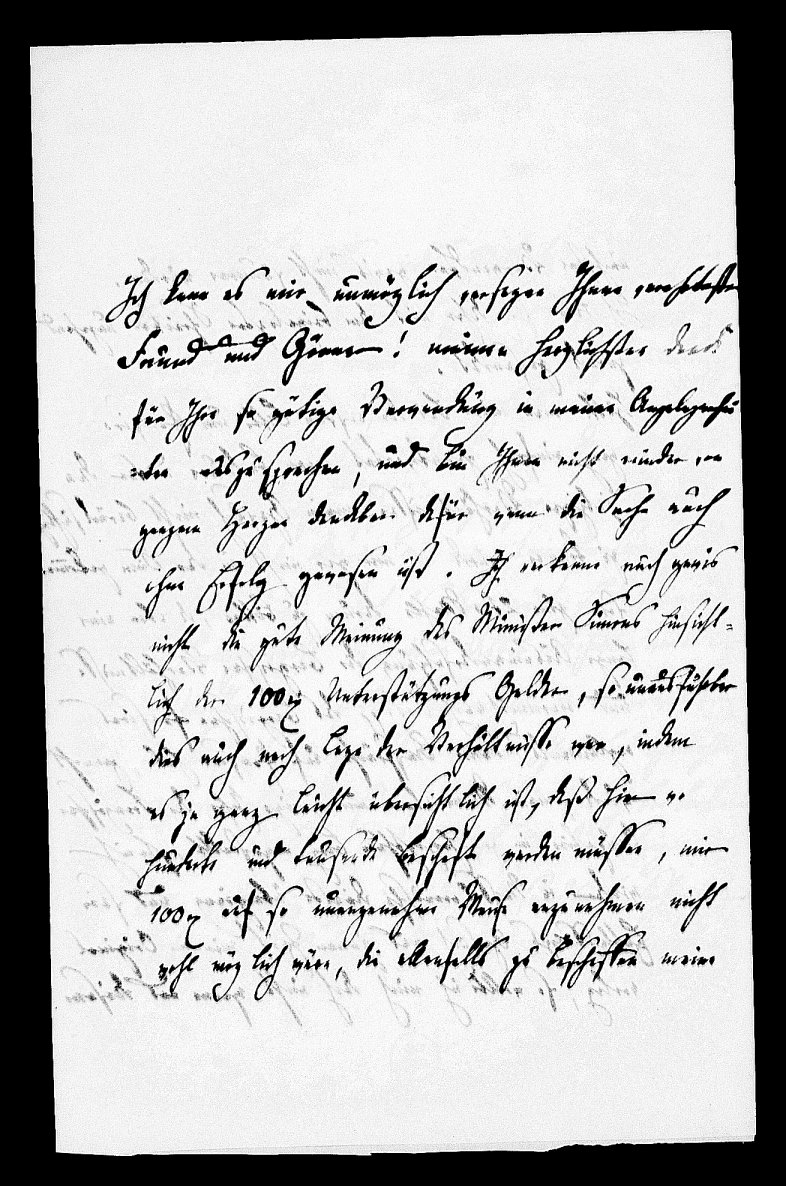 Ich kann es mir unmöglich versagen Ihnen, verehrtester
Freund und Gönner! meinen herzlichsten Dank
für Ihre so gütige Verwendung in meiner Angelegenhei
auszusprechen, und bin Ihnen nicht minder von
ganzem Herzen dankbar dafür wenn die Sache auch
ohne Erfolg gewesen ist. Ich verkenne auch gewis
nicht die gute Meinung des Minister Simons hinsicht=
lich der 100 Unterstützungs Gelder, so unausführbar
dies auch nach Lage der Verhältnisse war, indem
es ja ganz leicht übersichtlich ist, daß hier wo
hunderte und tausende beschaft werden müssen, mir
100 auf so unangenehme Weise anzunehmen nicht
wohl möglich wäre, die allenfalls zu beschaffen meine